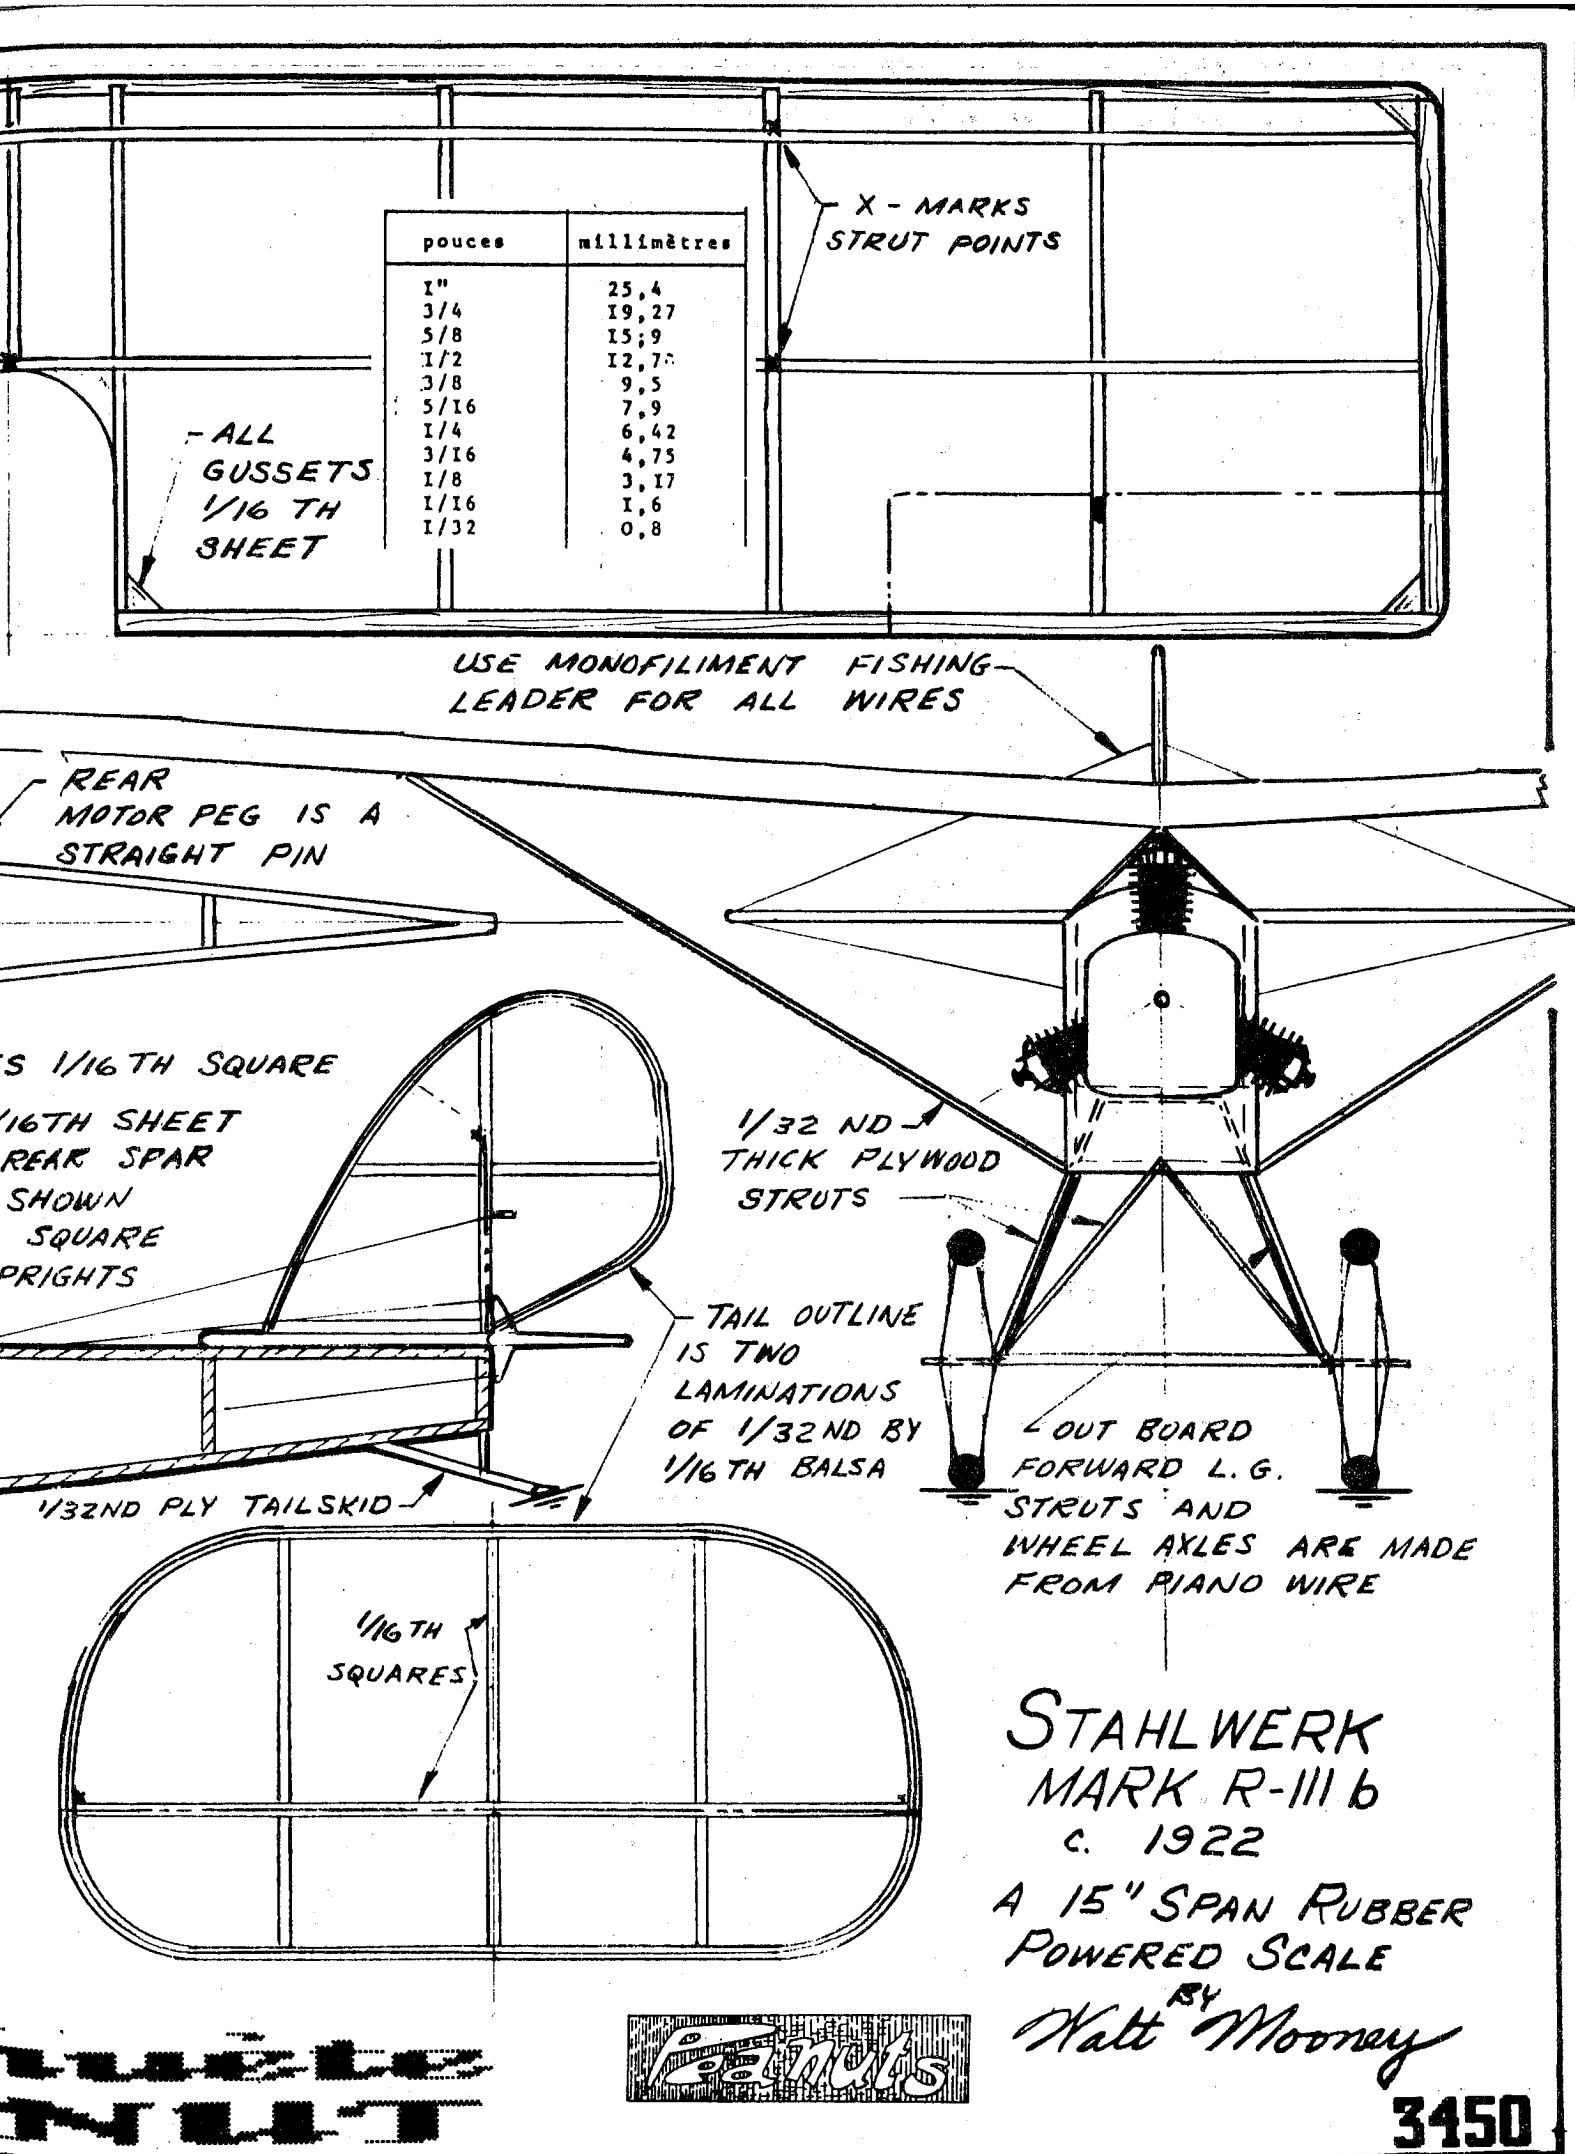 pouces millimètres
I" 25,4
3/4 I9,27
5/8 I5;9
I/2 I2,7
3/8 9,5
5/I6 7,9
I/4 6,42
3/I6 4,75
I/8 3,I7
I/I6 I,6
I/32 0,8
X - MARKS
STRUT POINTS
- ALL
GUSSETS
1/16 TH
SHEET
USE MONOFILIMENT FISHING
LEADER FOR ALL WIRES
REAR
MOTOR PEG IS A
STRAIGHT PIN
S 1/16 TH SQUARE
/16TH SHEET
REAR SPAR
SHOWN
SQUARE
PRIGHTS
1/32 ND
THICK PLYWOOD
STRUTS
TAIL OUTLINE
IS TWO
LAMINATIONS
OF 1/32ND BY
1/16 TH BALSA
OUT BOARD
FORWARD L.G.
STRUTS AND
WHEEL AXLES ARE MADE
FROM PIANO WIRE
1/32ND PLY TAILSKID
1/16 TH
SQUARES
STAHLWERK
MARK R-III b
c. 1922
A 15" SPAN RUBBER
POWERED SCALE
BY
Walt Mooney
Peanuts
NUT
3450